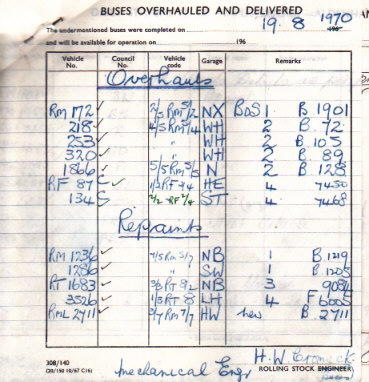 BUSES OVERHAULED AND DELIVERED
19. 8 1970
The undermentioned buses were completed on
and will be available for operation on 196
Vehicle No. Council No. Vehicle code Garage Remarks
Overhauls
RM 172 ✓ 2/5 RM 5/2 NX BDS 1. B 1901
218 ✓ 4/5 RM 5/4 WH 2 B. 72
253 ✓ " WH 2 B. 105
320 ✓ " WH 2 B. 89
1866 ✓ 5/5 RM 5/5 N 2 B 128
RF 87 ✓ HE 4 7450
134 2/2 RF 2/4 ST 4 7468
Repaints
RM 1236 ✓ 7/5 RM 5/7 NB 1 B. 1219
1286 ✓ " SW 1 B. 1205
RT 1683 ✓ NB 3 9084
3526 ✓ 1/3 RT 8 LH 4 F 6005
RML 2711 ✓ 3/7 RM 7/7 HW new B 2711
30B/140
Mechanical Eng. H.W.
ROLLING STOCK ENGINEER